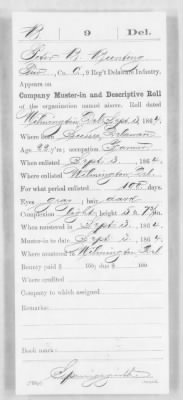 B 9 Del.
Peter B.
Co. C, 9 Reg't Delaware Infantry.
Appears on
Company Muster-in and Descriptive Roll
of the organization named above. Roll dated
Wilmington Del. Sept 3, 1864.
Where born Sussex, Delaware
Age 22 y'rs; occupation Farmer
When enlisted Sept 3, 1864.
Where enlisted Wilmington Del.
For what period enlisted 100 days.
Eyes gray; hair dark
Complexion light; height 5 ft. in.
When mustered in Sept 3, 1864.
Muster-in to date Sept 3, 1864.
Where mustered in Wilmington Del
Bounty paid $ 100; due $ 100
Where credited
Company to which assigned
Remarks:
Book mark: